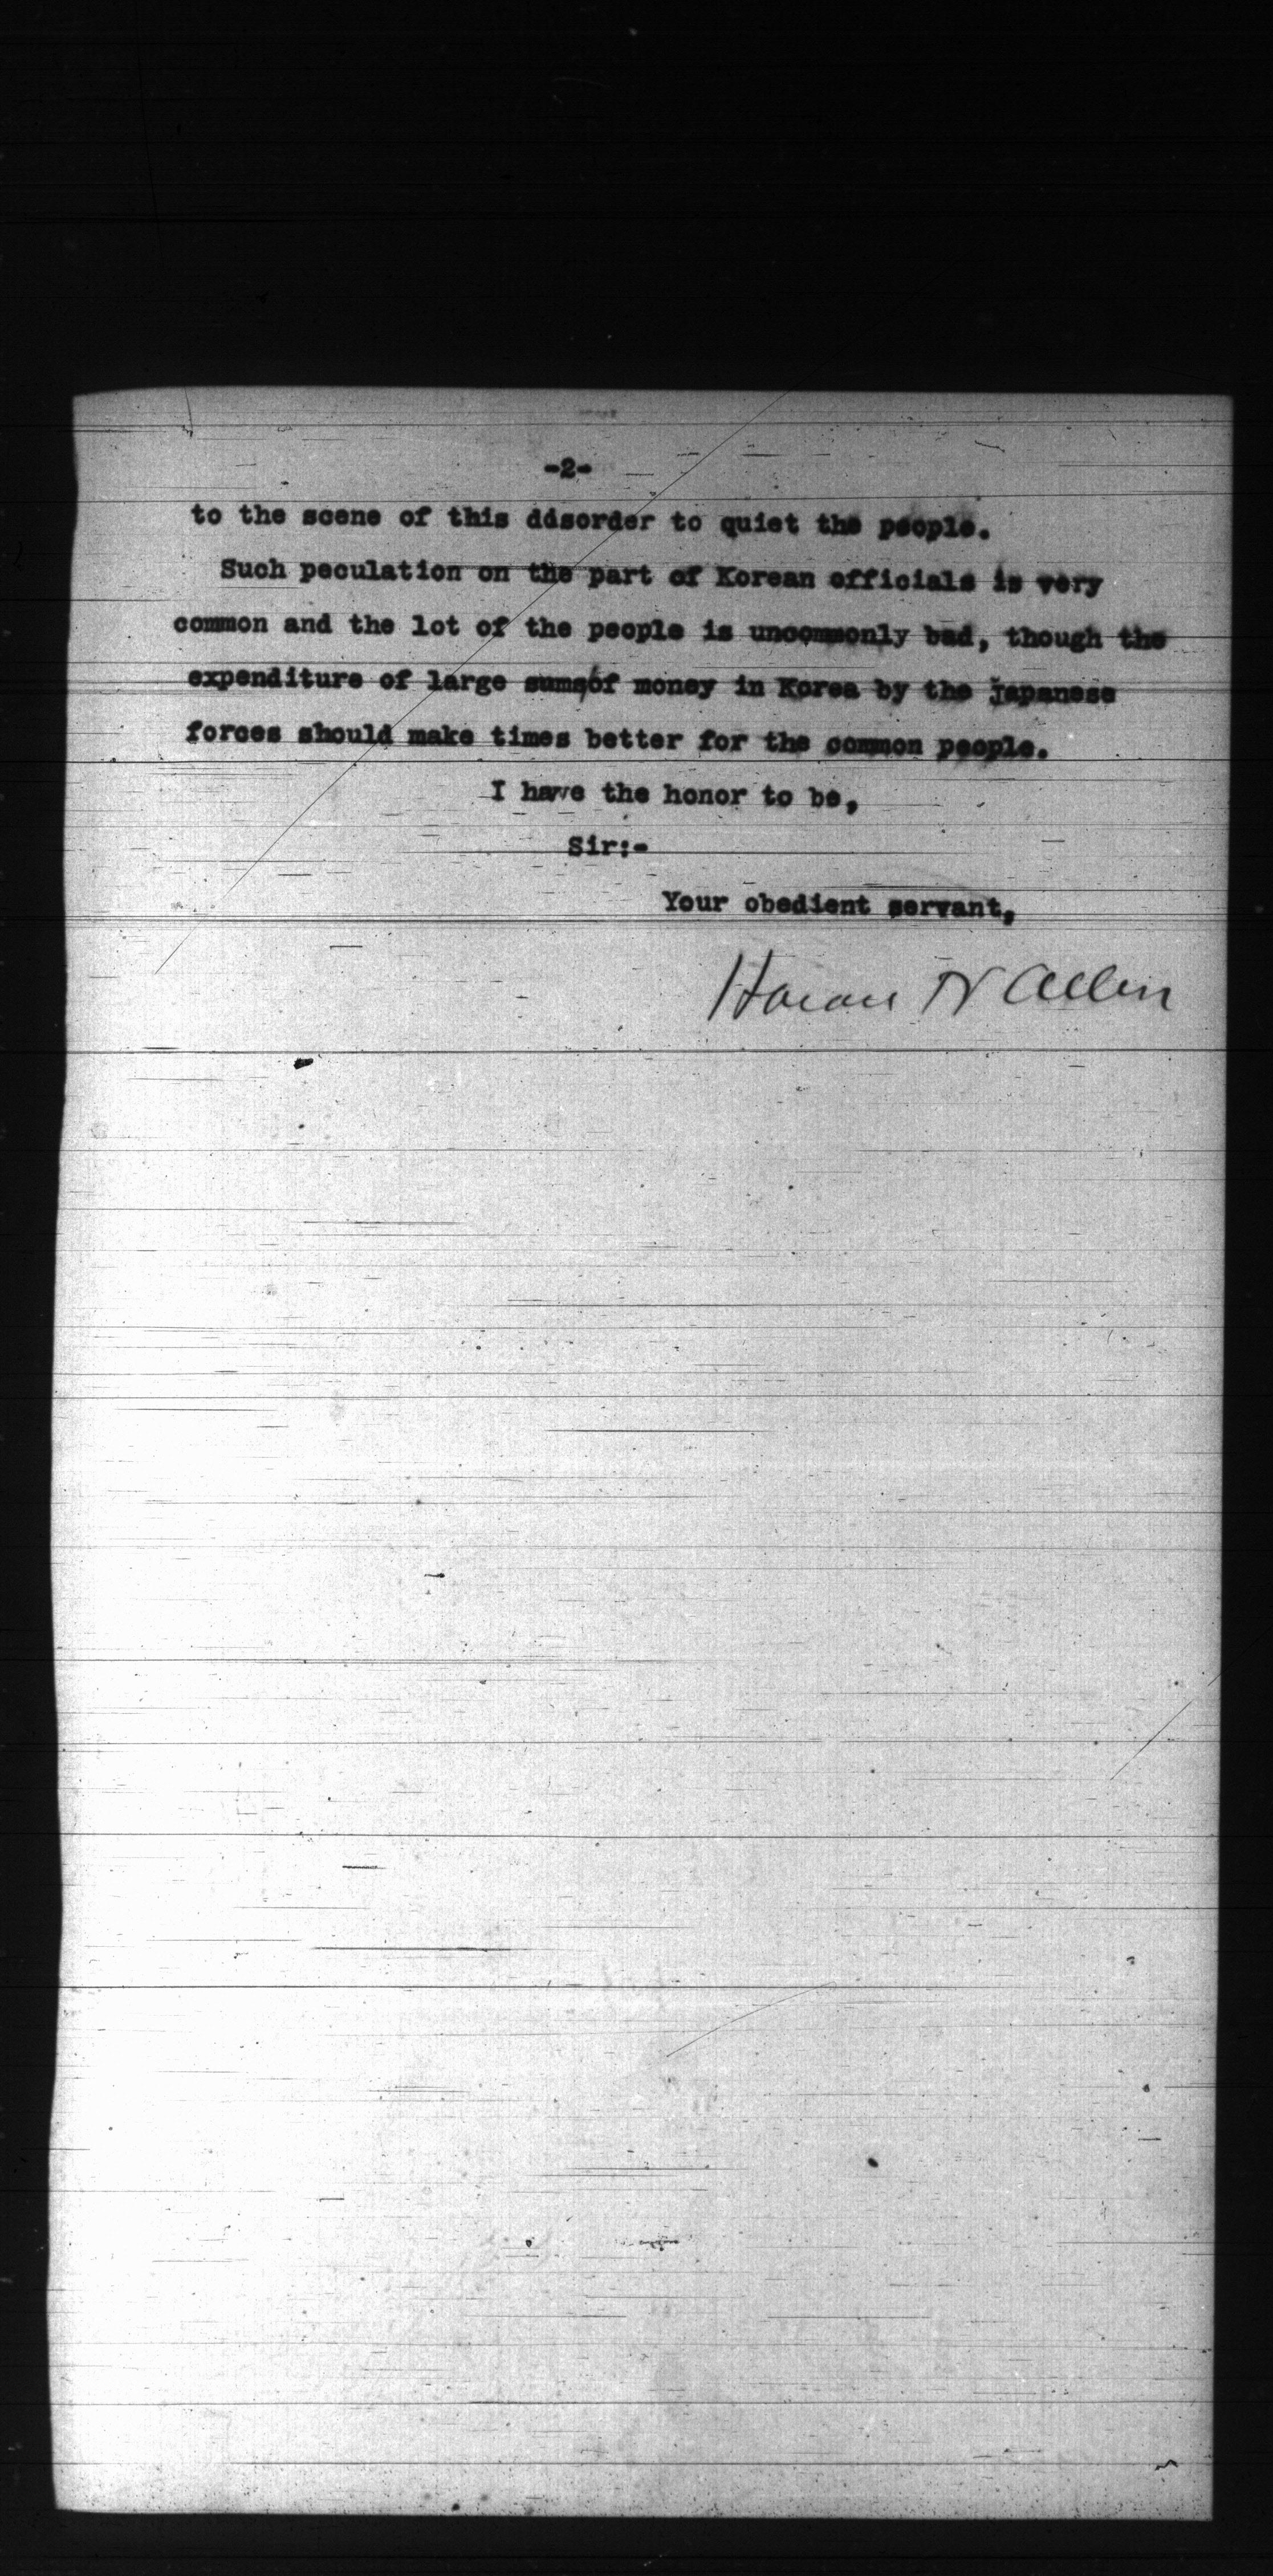 -2-
to the scene of this ddsorder to quiet the people.
Such peculation on the part of Korean officials is very
common and the lot of the people is uncommonly bad, though the
expenditure of large sums/of money in Korea by the Japanese
forces should make times better for the common people.
I have the honor to be,
Sir:-
Your obedient servant,
Horace N Allen